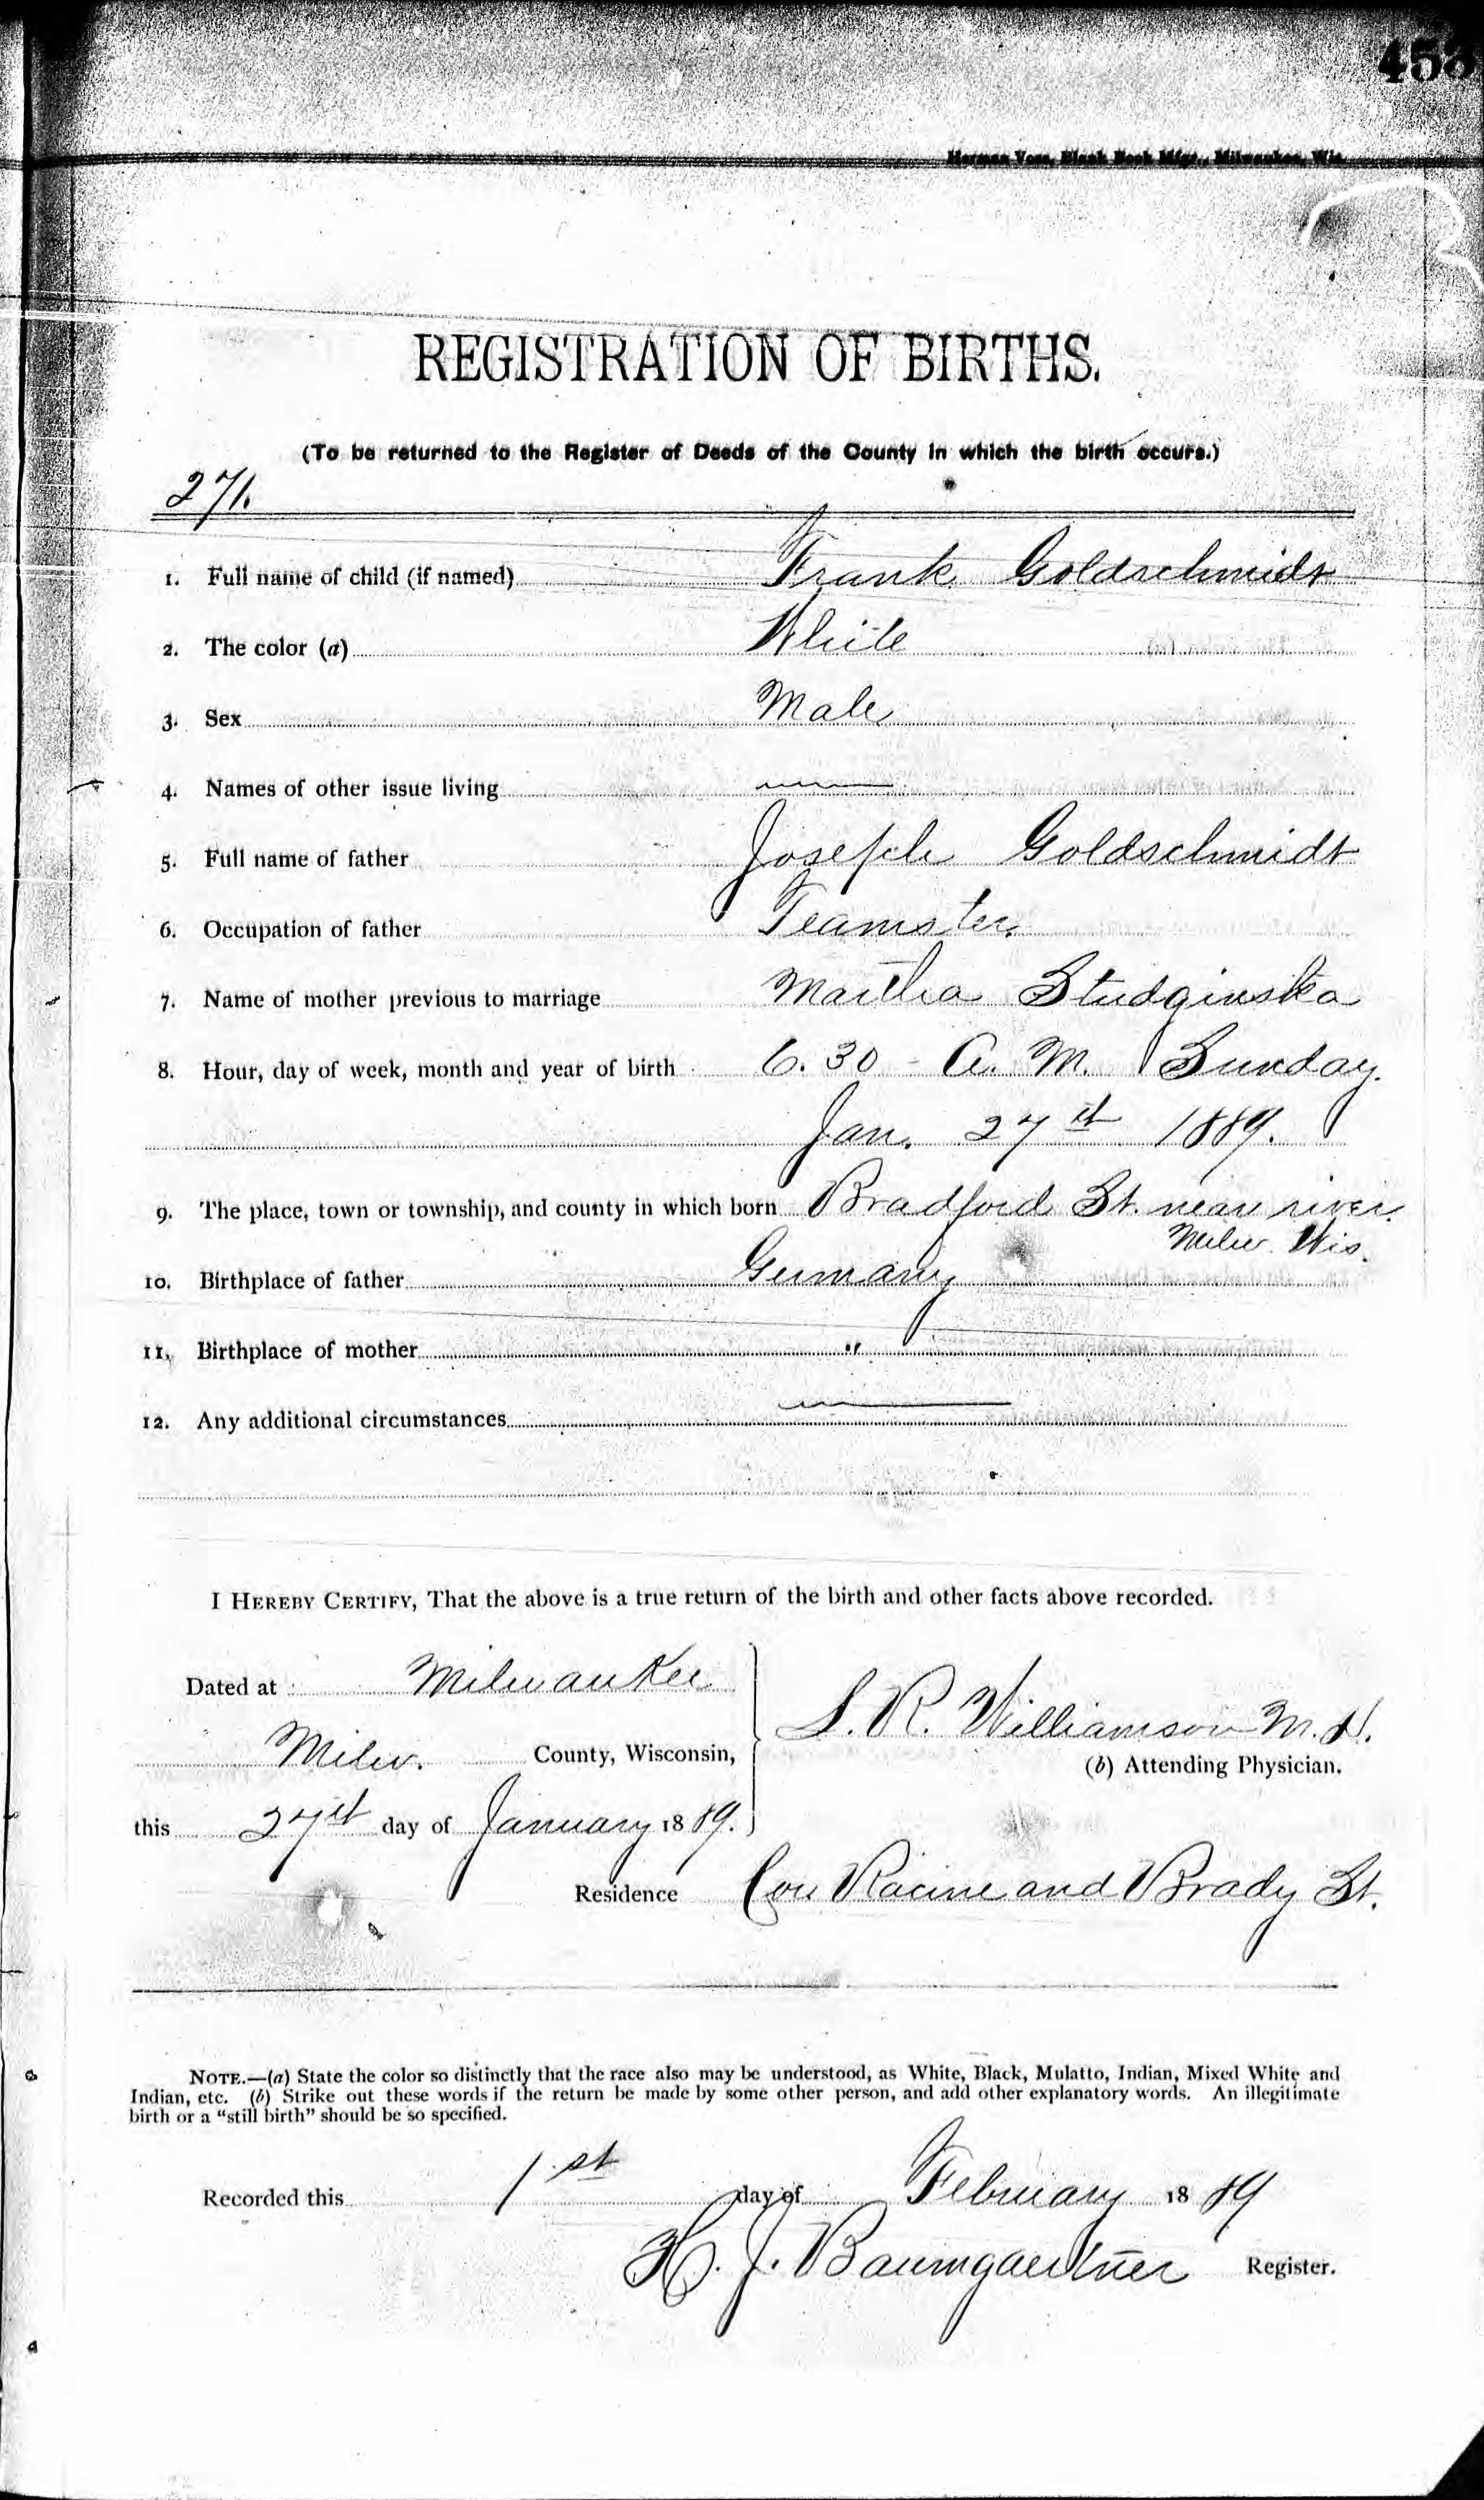 458
Herman Voss, Blank Book Mfgr., Milwaukee, Wis.
REGISTRATION OF BIRTHS.
(To be returned to the Register of Deeds of the County in which the birth occurs.)
271.
1. Full name of child (if named) Frank Goldschmidt
2. The color (a) White
3. Sex Male
4. Names of other issue living
5. Full name of father Joseph Goldschmidt
6. Occupation of father Teamster.
7. Name of mother previous to marriage Martha Studginska
8. Hour, day of week, month and year of birth 6.30 - A. M. Sunday.
Jan. 27th 1889.
9. The place, town or township, and county in which born Bradford St. near river.
Milw. Wis.
10. Birthplace of father Germany
11. Birthplace of mother "
12. Any additional circumstances
I HEREBY CERTIFY, That the above is a true return of the birth and other facts above recorded.
Dated at Milwaukee
Milw. County, Wisconsin,
S. R. Williamson M. D.
(b) Attending Physician.
this 27st day of January 1889.
Residence Cor Racine and Brady St.
NOTE.—(a) State the color so distinctly that the race also may be understood, as White, Black, Mulatto, Indian, Mixed White and
Indian, etc. (b) Strike out these words if the return be made by some other person, and add other explanatory words. An illegitimate
birth or a "still birth" should be so specified.
Recorded this 1st day of February 1889
H. J. Baumgaertner Register.